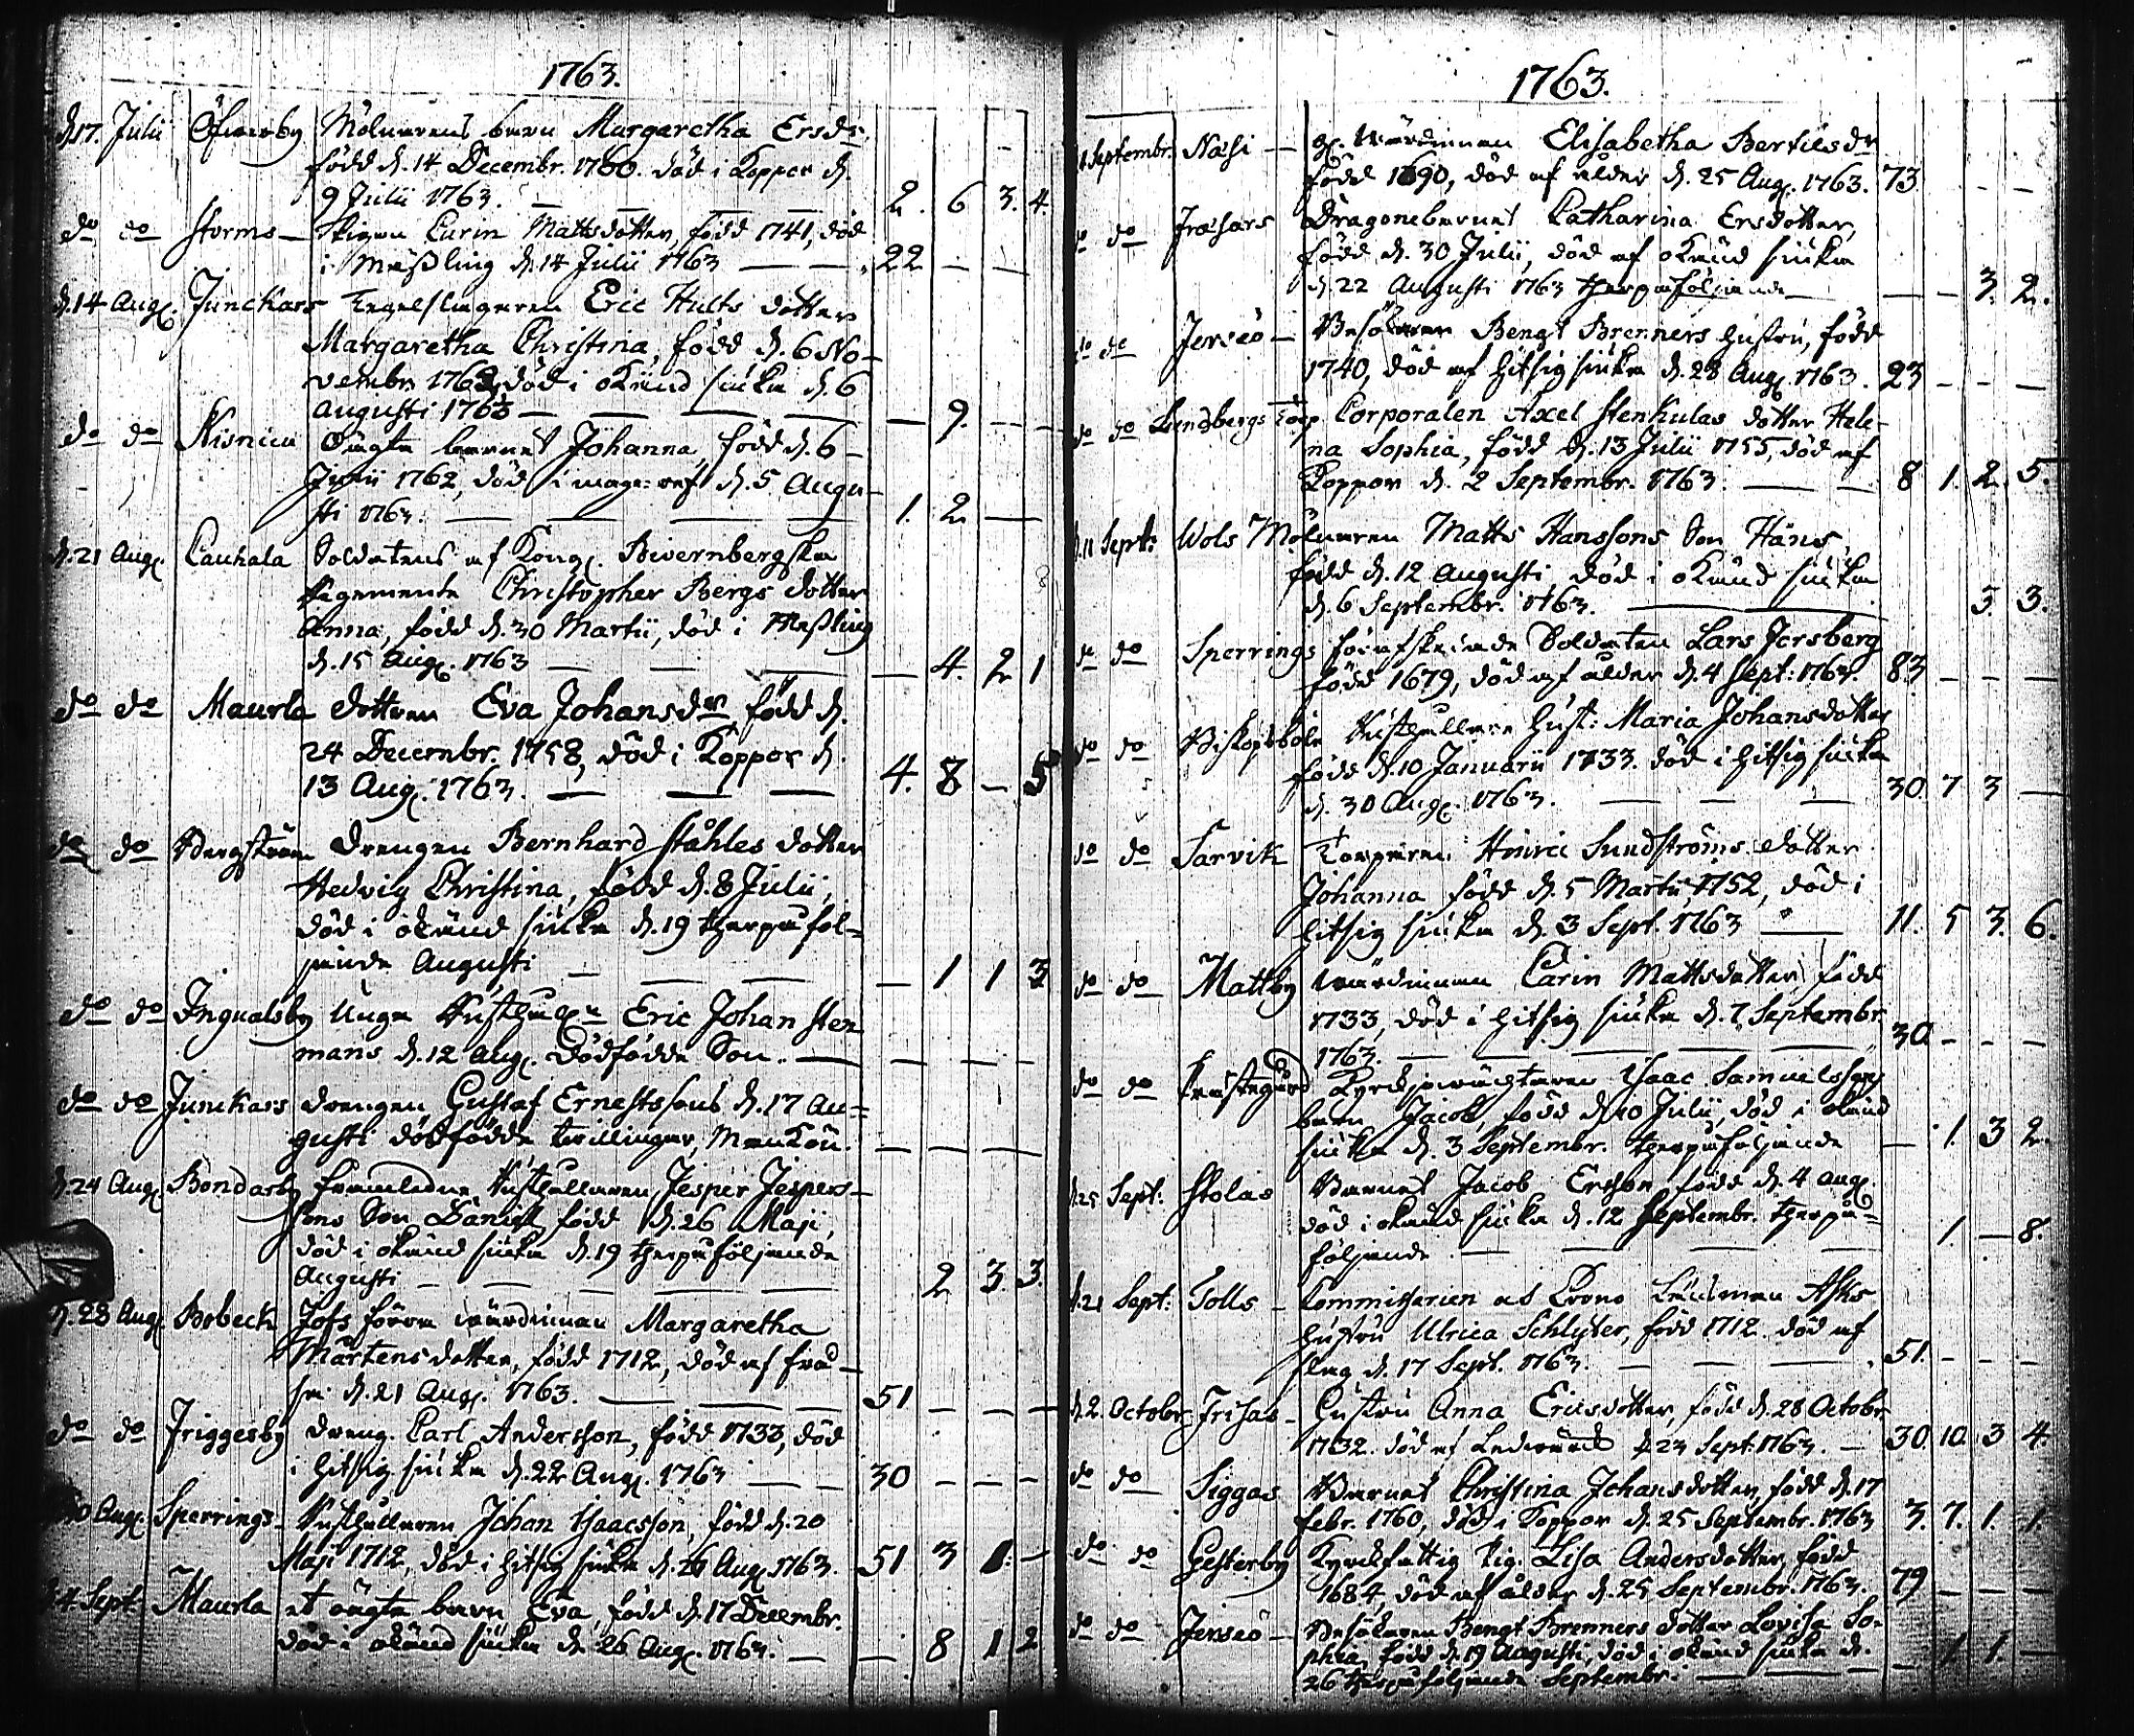 1763.
d. 17. Julii Öfverby Mölnarens barn Margaretha Ersdr
född d. 14 Decembr. 1760. död i Koppor d.
9 Julii 1763. 2. 6 3. 4.
do do Storms Pigan Carin Mattsdotter, född 1741, död
i Mäßling d. 14 Julii 1763 22 — —
d. 14 Aug. Junckars Tegelslagaren Eric Hults dotter
Margaretha Christina, född d. 6 No-
vembr. 1762, död i okänd siuka d. 6
Augusti 1763 — 9. — —
do do Oägta barnet Johanna, född d. 6
Junii 1762, död i d. 5 Augu-
sti 1763. 1. 2 —
d. 21 Aug. Cauhala Soldatens af Kongl. Bivernbergska
Regemente Christopher Bergs dotter
Anna, född d. 30 Martii, död i Mäßling
d. 15 Aug. 1763 — 4. 2 1
do do Maurla dottren Eva Johansdr, född d.
24 Decembr. 1758, död i Koppor d.
13 Aug. 1763. 4. 8 — 5
do do Bergström drengen Bernhard Ståhles dotter
Hedvig Christina, född d. 8 Julii,
död i okänd siuka d. 19 therpåföl-
jande Augusti — 1 1 3
do do Ingvalsby Unga Rusthåll. Eric Johan Sten
mans d. 12 Aug. dödfödde Son. — — — —
do do Junckars drengen Gustaf Ernestssons d. 17 Au-
gusti dödfödde twillingar, Mankön. — — — —
d. 24 Aug. Bondarby framledne Rusthållaren Jesper Jespers-
sons Son Daniel, född d. 26 Maji,
död i okänd siuka d. 19 therpåföljande
Augusti 2 3. 3.
d. 28 Aug. Bobeck Tofs förra wärdinnan Margaretha
Mårtensdotter, född 1712, död af frå-
ssa d. 21 Aug. 1763. 51 — — —
do do Friggesby dreng. Carl Andersson, född 1733, död
i hitsig siuka d. 22 Aug. 1763 30 — — —
30 Aug. Sperrings Rusthållaren Johan Isaacsson, född d. 20
Maji 1712, död i hitsig siuka d. 26 Aug. 1763. 51 3 1. —
d. 4 Sept. Maurla et oägta barn Eva, född d. 17 Decembr.
död i okänd siuka d. 26 Aug. 1763. — 8 1 2
1763.
1 Septembr. Näsi gl. Wärdinnan Elisabetha Bertilsdr
född 1690, död af ålder d. 25 Aug. 1763. 73. — —
do do Fräsars Dragonebarnet Catharina Ersdotter,
född d. 30 Julii, död af okänd siuka
d. 22 Augusti 1763 therpåföljande — — 3. 2.
do do Jersiö Besökaren Bengt Brenners hustru, född
1740, död af hitsig siuka d. 28 Aug. 1763. 23 — — —
do do Lundsbergs Torp Corporalen Axel Stenkulas dotter Hele-
na Sophia, född d. 13 Julii 1755, död af
Koppor d. 2 Septembr. 1763. 8 1. 2. 5.
d. 11 Sept: Wols Mölnaren Matts Hanssons Son Hans,
född d. 12 Augusti, död i okänd siuka
d. 6 Septembr. 1763. 3. 3.
do do Sperrings förafskedade Soldaten Lars Jersberg
född 1679, död af ålder d. 4 Sept: 1763. 83 — — —
do do Biskopsböle Rusthållare Hust: Maria Johansdotter
född d. 10 Januarii 1733. död i hitsig siuka
d. 30 Aug. 1763. 30. 7 3 —
do do Sarvik Torparen Hinric Sundströms dotter
Johanna född d. 5 Martii 1752, död i
hitsig siuka d. 3 Sept. 1763 11. 5 3. 6.
do do Mattby wärdinnan Carin Mattsdotter, född
1733, död i hitsig siuka d. 7 Septembr.
1763. 30 — — —
do do Prästegård Kyrckjowäctaren Isaac Samuelssons
barn Jacob, född d. 10 Julii, död i okänd
siuka d. 3 Septembr. therpåföljande — 1. 3 2.
d. 25 Sept: Stolas Barnet Jacob Ersson, född d. 4 Aug.
död i okänd siuka d. 12 Septembr. therpå-
följande 1. — 8.
d. 21 Sept: Tolls Commissarien as Crono Länsman Asks
hustru Ulrica Schlyter, född 1712. död af
slag d. 17 Sept. 1763. 51. — — —
d. 2. Octobr. Frisas Hustru Anna Ericsdotter, född d. 28 Octobr.
1732. död af d. 23 Sept: 1763. 30. 10. 3 4.
do do Siggas Barnet Christina Johansdotter, född d. 17
Febr. 1760, död i Koppor d. 25 Septembr. 1763 3. 7. 1. 1.
do do Gesterby Kyrckfattig Pig. Lisa Andersdotter, född
1684, död af ålder d. 25 Septembr. 1763. 79 — — —
do do Jersiö Besökaren Bengt Brenners dotter Lovisa So-
phia, född d. 19 Augusti, död i okänd siuka d.
26 therpåföljande Septembr. — 1. 1. —